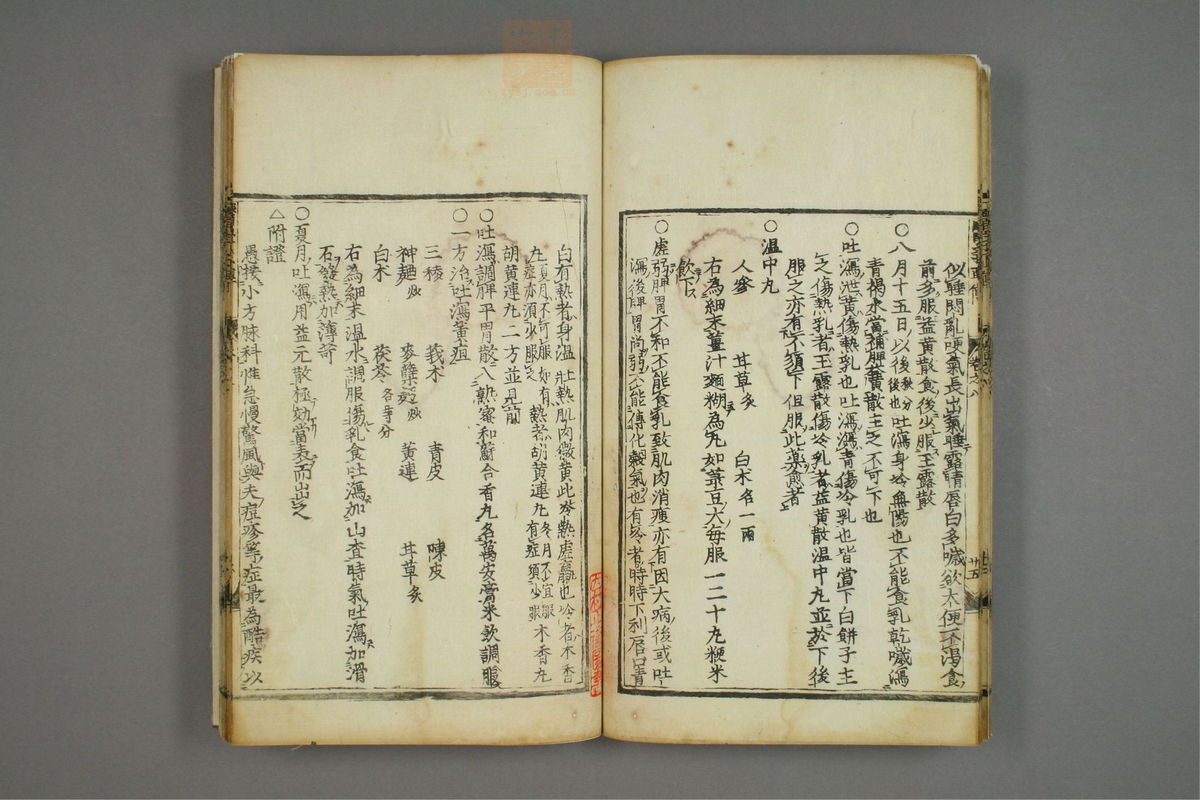 似睡悶亂哽氣長出氣睡露睛唇白多噦欲大便不渴食
前多服益黃散食後少服玉露散
○八月十五日以後秋分後也吐瀉身冷無陽也不能食乳乾噦瀉
青褐水當補脾益黃散主之不可下也
○吐瀉泄黃傷熱乳也吐瀉瀉青傷冷乳也皆當下白餅子主
之傷熱乳者玉露散傷冷乳者益黃散温中丸並於下後
服之亦有不須下但服此藥愈者
○温中丸
人參 甘草炙 白朮各一兩
右為細末薑汁麵糊為丸如菉豆大每服一二十丸粳米
飲下
○虛弱脾胃不和不能食乳致肌肉消瘦亦有因大病後或吐
瀉後脾胃尚弱不能傳化穀氣也有冷者時時下利唇口青
白有熱者身温壯熱肌肉微黃此冷熱虛羸也冷者木香
丸夏月不可服如有症亦須少服之熱者胡黃連丸冬月不宜服有症須少服木香丸
胡黃連丸二方並見前
○吐瀉調脾平胃散入熟蜜和蘇合香丸名萬安膏米飲調服
○一方治吐瀉黃疸
三稜 莪朮 青皮 陳皮
神麯炒 麥蘗麵炒 黃連 甘草炙
白朮 茯苓各等分
右為細末温水調服傷乳食吐瀉加山査時氣吐瀉加滑
石發熱加薄荷
○夏月吐瀉用益元散極効當表而出之
△附證
愚按小方脉科惟急慢驚風與夫痘疹等症最為酷疾以
卷之八
廿五